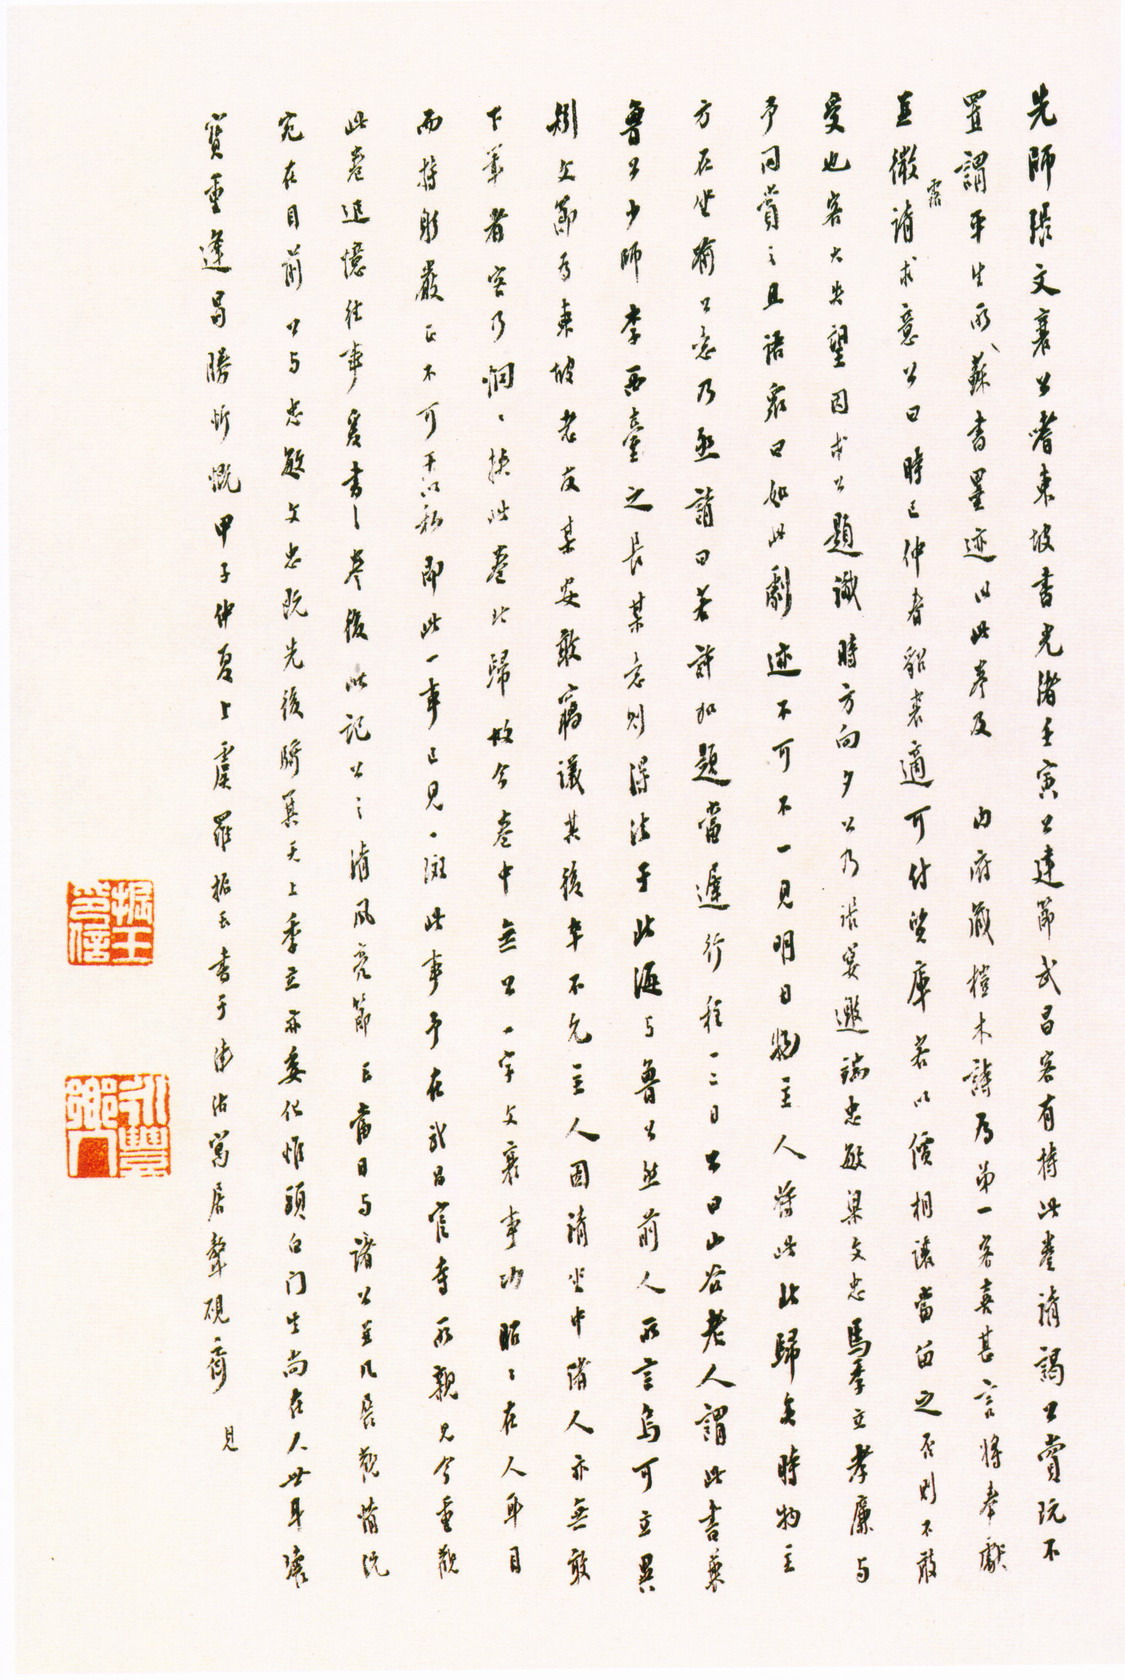 先師張文襄公嗜東坡書光緒壬寅公建節武昌客有持此卷請謁公賞玩不
置謂平生所見蘇書墨迹以此卷及內府藏榿木詩為第一客喜甚言將奉獻
並微露請求意公曰時已仲春貂裘適可付質庫若以價相讓當留之否則不敢
受也客大失望因求公題識時方向夕公乃張宴邀端忠敏梁文忠馬季立孝廉与
予同賞之且語眾曰如此劇迹不可不一見明日物主人將此北歸矣時物主
方在坐窺公意乃亟請曰若許加題當遲行程一二日公曰山谷老人謂此書兼
魯公少師李西臺之長某意則得法于北海与魯公然前人所言烏可立異
矧文節為東坡老友某安敢竊議其後卒不允主人固請坐中諸人亦無敢
下筆者客乃惘惘挾此卷北歸故今卷中無公一字文襄事功昭昭在人耳目
而持躬嚴正不可干以私即此一事已見一斑此事予在武昌官寺所親見今重觀
此卷追憶往事爰書之卷後以記公之清風亮節且當日与諸公並几展觀情況
宛在目前公与忠敏文忠既先後騎箕天上季立亦委化惟頭白門生尚在人世耳展
寶重逢曷勝忻慨甲子仲夏上虞羅振玉書于津沽寓居聲硯齋
見
振玉印信
永豐鄉人